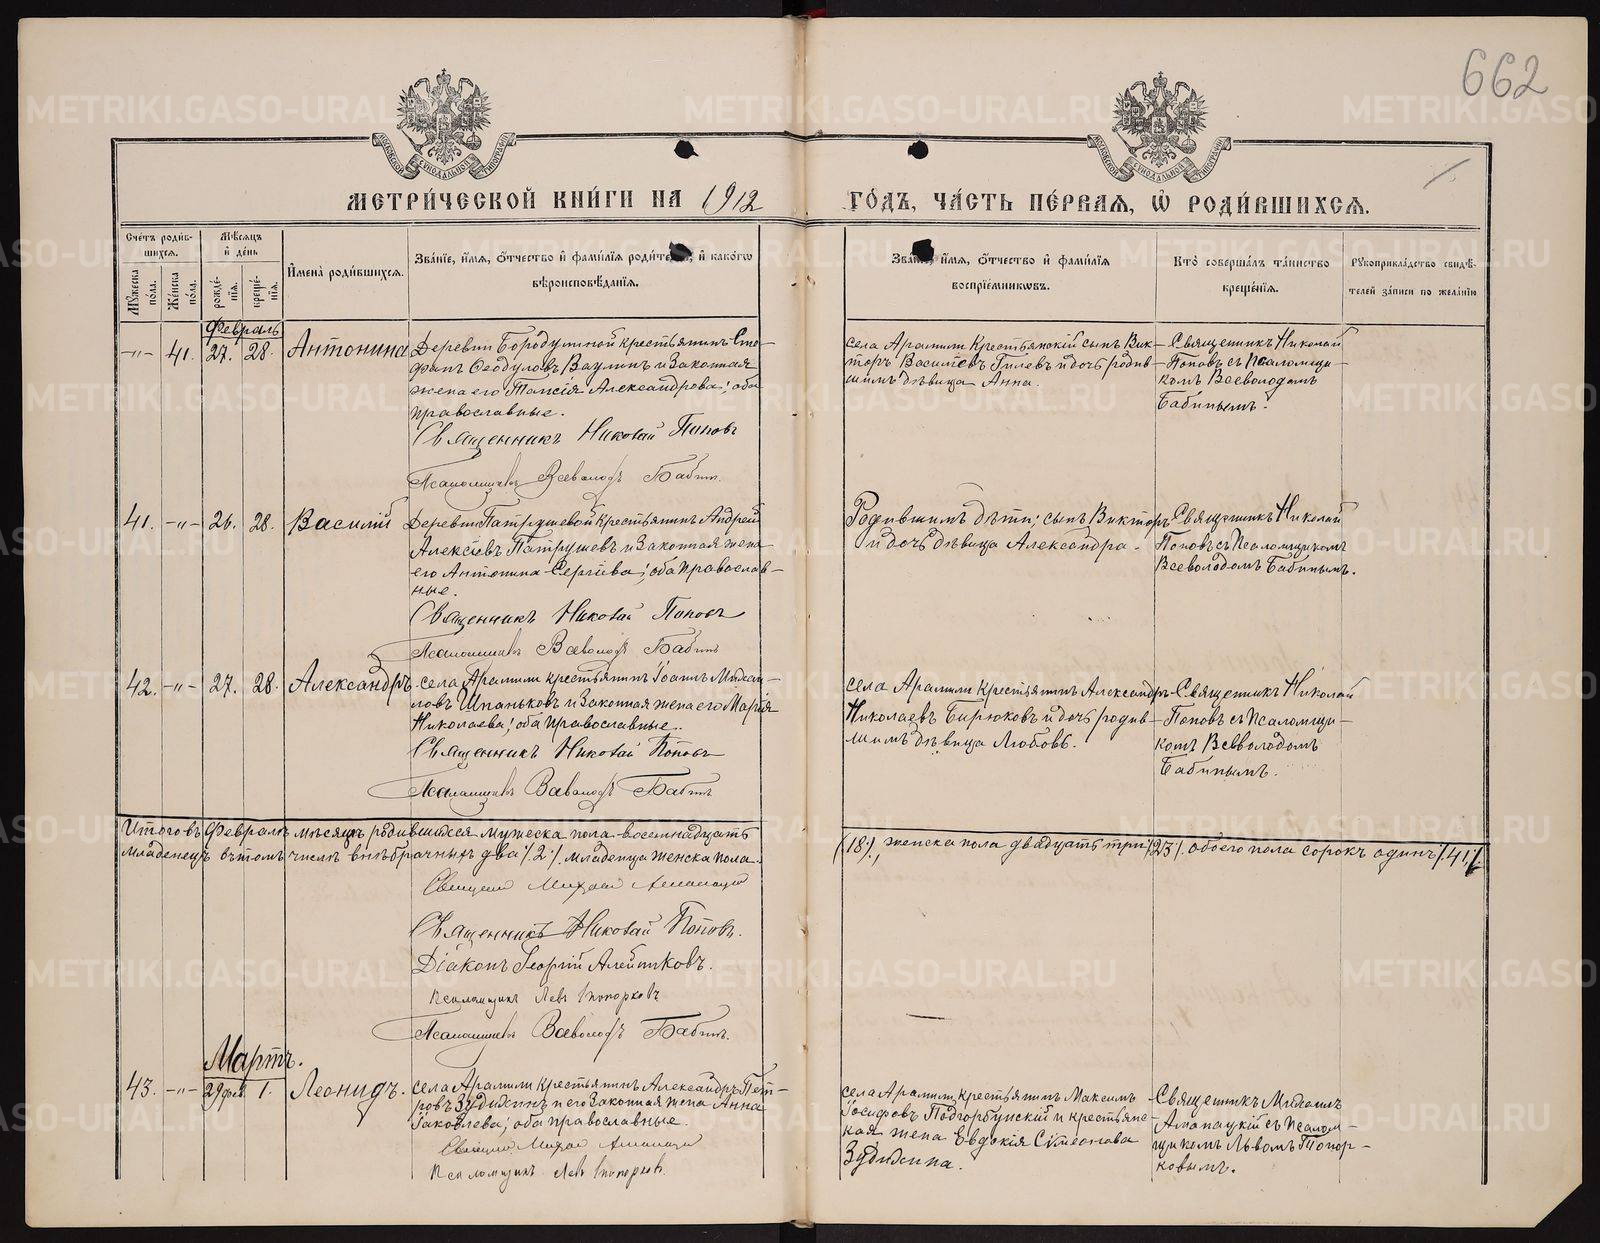 662
МЕТРИ́ЧЕСКОЙ КНИ́ГИ НА 1912 ГО́ДЪ, ЧА́СТЬ ПЕ́РВАЯ, Ѡ҆ РОДИ́ВШИХСЯ.
Сче́тъ роди́вшихся.
Мꙋ́жеска по́ла.
Же́нска по́ла.
Мѣ́сяцъ и҆ де́нь
рожде́нїя.
креще́нїя.
И҆мена̀ роди́вшихся.
Зва́нїе, и҆́мя, ѻ҆́тчество и҆ фами́лїя роди́телей, и҆ како́гѡ
вѣроисповѣ́данїя.
Зва́нїе, и҆́мя, ѻ҆́тчество и҆ фами́лїя
воспрїе́мниковъ.
Кто̀ соверша́лъ та́инство
креще́нїя.
Рꙋкоприкла́дство свидѣ́-
телей за́писи по жела́нїю
Февраль
-"- 41. 27. 28. Антонина
Деревни Бородулиной крестьянинъ Сте-
фанъ Ѳеодуловъ Ваулинъ и законная
жена его Таисія Александрова; оба
православные.
Священникъ Николай Поповъ
Псаломщикъ Всеволодъ Бабинъ
села Арамили крестьянскій сынъ Вик-
торъ Васильевъ Гилевъ и дочь родив-
шимъ дѣвица Анна.
Священникъ Николай
Поповъ съ псаломщи-
комъ Всеволодомъ
Бабинымъ.
41. -"- 26. 28. Василій
Деревни Патрушевой крестьянинъ Андрей
Алексѣевъ Патрушевъ и законная жена
его Антонина Сергіева; оба православ-
ные.
Священникъ Николай Поповъ
Псаломщикъ Всеволодъ Бабинъ
Родившимъ дѣти; сынъ Викторъ
и дочь дѣвица Александра.
Священникъ Николай
Поповъ съ псаломщикомъ
Всеволодомъ Бабинымъ.
42. -"- 27. 28. Александръ
села Арамили крестьянинъ Іоаннъ Михаи-
ловъ Шпаньковъ и законная жена его Марія
Николаева; оба православные.
Священникъ Николай Поповъ
Псаломщикъ Всеволодъ Бабинъ
села Арамили крестьянинъ Александръ
Николаевъ Бирюковъ и дочь родив-
шимъ дѣвица Любовь.
Священникъ Николай
Поповъ съ псаломщи-
комъ Всеволодомъ
Бабинымъ.
Итого въ Февралѣ мѣсяцѣ родившихся мужеска пола восемнадцать
(18)., женска пола двадцать три /23/. обоего пола сорокъ одинъ /.41./.
младенецъ въ томъ числѣ внѣбрачныхъ два /.2./. младенца женска пола.
Священникъ Николай Поповъ.
Діаконъ Георгій Алейниковъ.
Псаломщикъ Левъ Топорковъ
Псаломщикъ Всеволодъ Бабинъ.
Мартъ.
43. -"- 29 фев. 1. Леонидъ.
села Арамили крестьянинъ Александръ Пет-
ровъ Зудихинъ и его законная жена Анна
Іаковлева; оба православные.
Псаломщикъ Левъ Топорковъ.
села Арамили крестьянинъ Максимъ
Іосифовъ Подгорбунскій и крестьянс-
кая жена Евдокія Симеонова
Зудихина.
Священникъ Михаилъ
Аманацкій съ псалом-
щикомъ Львомъ Топор-
ковымъ.
METRIKI.GASO-URAL.RU